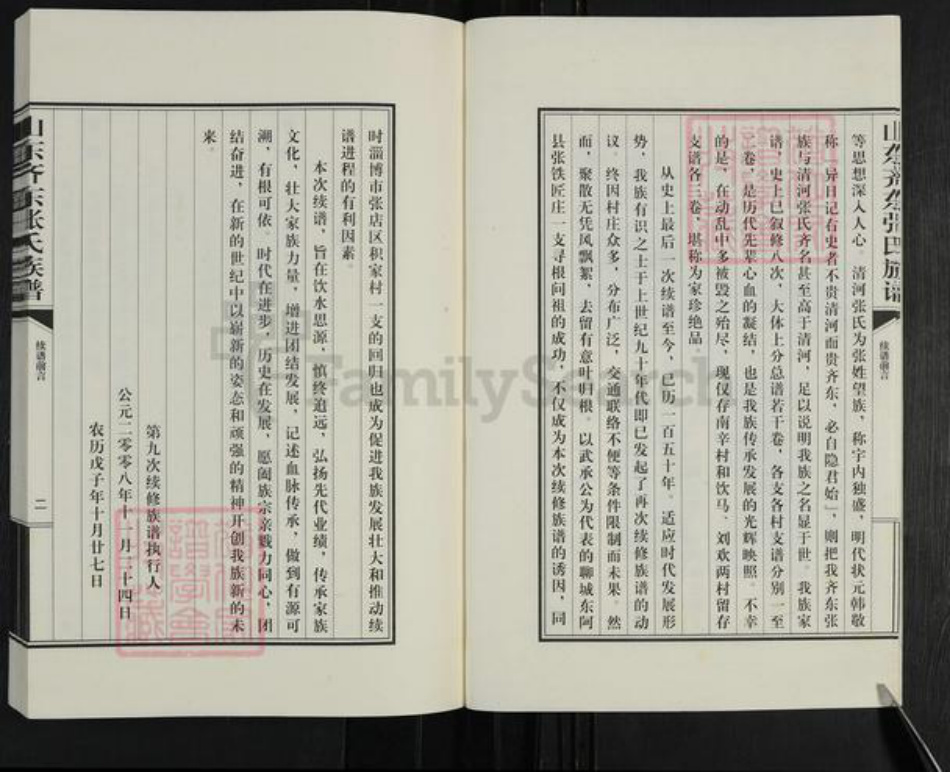 山东齐东张氏族谱
续谱前言
等思想深入人心。清河张氏为张姓望族，称宇内独盛，明代状元韩敬
称『异日记右史者不贵清河而贵齐东，必自隐君始』，则把我齐东张
族与清河张氏齐名甚至高于清河，足以说明我族之名显于世。我族家
谱，史上已叙修八次，大体上分总谱若干卷，各支各村支谱分别一至
三卷，是历代先辈心血的凝结，也是我族传承发展的光辉映照。不幸
的是，在动乱中多被毁之殆尽，现仅存南辛村和饮马、刘欢两村留存
支谱各三卷，堪称为家珍绝品。
从史上最后一次续谱至今，已历一百五十年。适应时代发展形
势，我族有识之士于上世纪九十年代即已发起了再次续修族谱的动
议。终因村庄众多，分布广泛，交通联络不便等条件限制而未果。然
而，聚散无凭风飘絮，去留有意叶归根。以武承公为代表的聊城东阿
县张铁匠庄一支寻根问祖的成功，不仅成为本次续修族谱的诱因，同
时淄博市张店区积家村一支的回归也成为促进我族发展壮大和推动续
谱进程的有利因素。
本次续谱，旨在饮水思源，慎终追远，弘扬先代业绩，传承家族
文化，壮大家族力量，增进团结发展，记述血脉传承，做到有源可
溯，有根可依。时代在进步，历史在发展，愿阖族宗亲戮力同心，团
结奋进，在新的世纪中以崭新的姿态和顽强的精神开创我族新的未
来。
第九次续修族谱执行人
公元二零零八年十一月二十四日
农历戊子年十月廿七日
山东齐东张氏族谱
续谱前言
二
FamilySearch